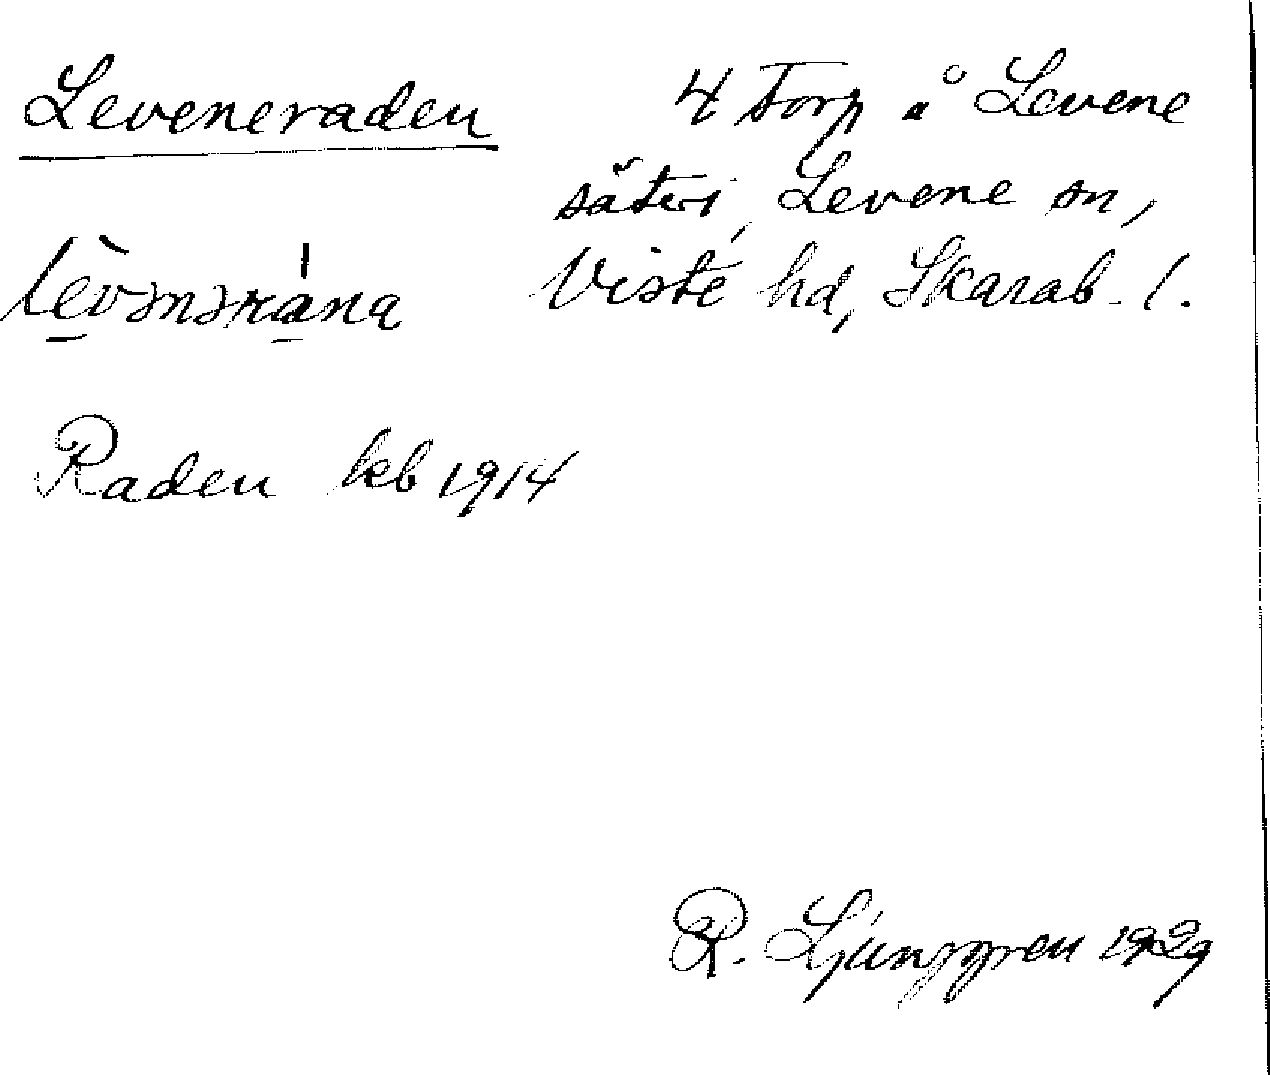 Leveneraden
4 Torp å Levene
säteri, Levene sn,
Viste hd, Skarab. l.
lèvənərána
Raden kb 1914
R. Ljunggren 1929